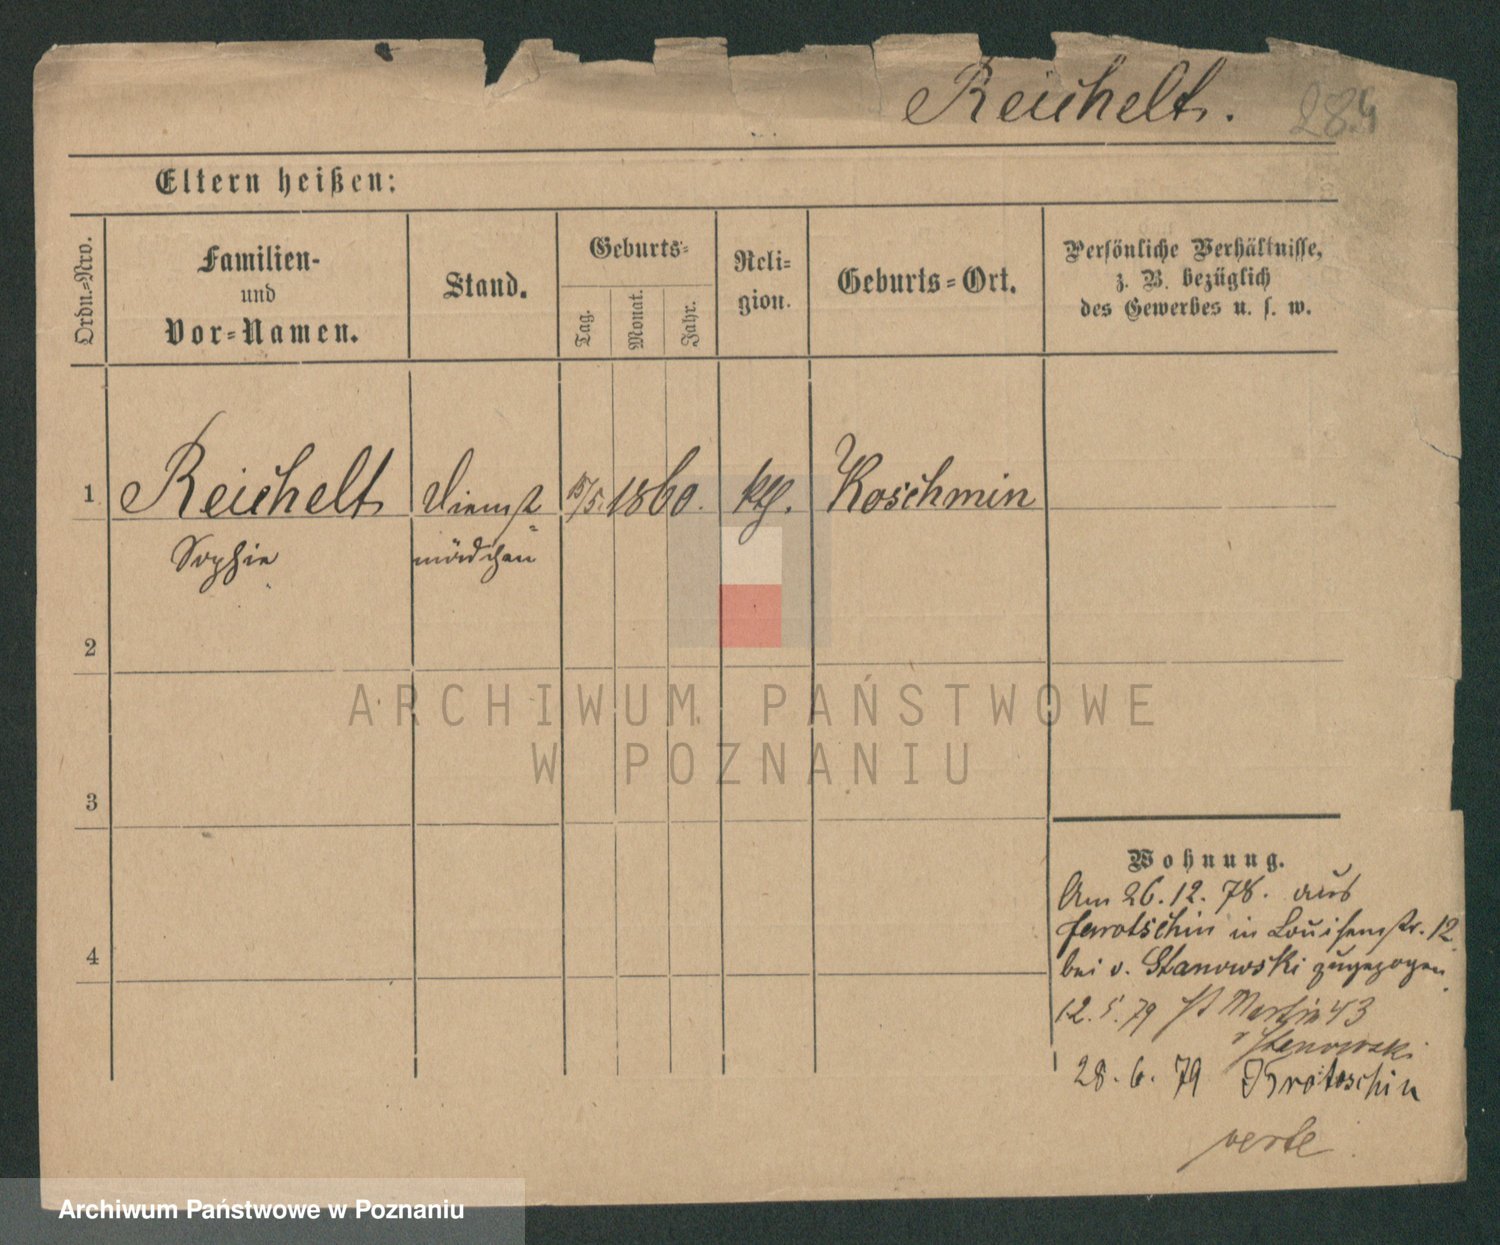 Reichelt.
Eltern heißen:
Ordn.-Nro.
Familien-
und
Vor-Namen.
Stand.
Geburts-
Tag.
Monat.
Jahr.
Reli-
gion.
Geburts-Ort.
Persönliche Verhältnisse,
z. B. bezüglich
des Gewerbes u. s. w.
1 Reichelt Dienst 15/5. 1860. kth. Koschmin
Sophie mädchen
2
3
4
Wohnung.
Am 26.12.78. aus
Jarotschin in Louisenstr. 12
bei v. Stanowski zugezogen
12.5.79 St Martin 43
v Stanowski
28.6.79 Krotoschin
verte
ARCHIWUM PAŃSTWOWE
W POZNANIU
Archiwum Państwowe w Poznaniu